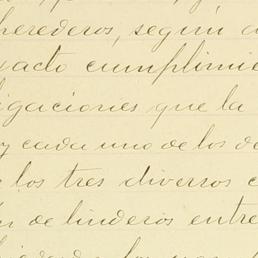 herederos, según
xacto cumplimie
igaciones que la
y cada uno de los de
los tres diversos c
de linderos entre